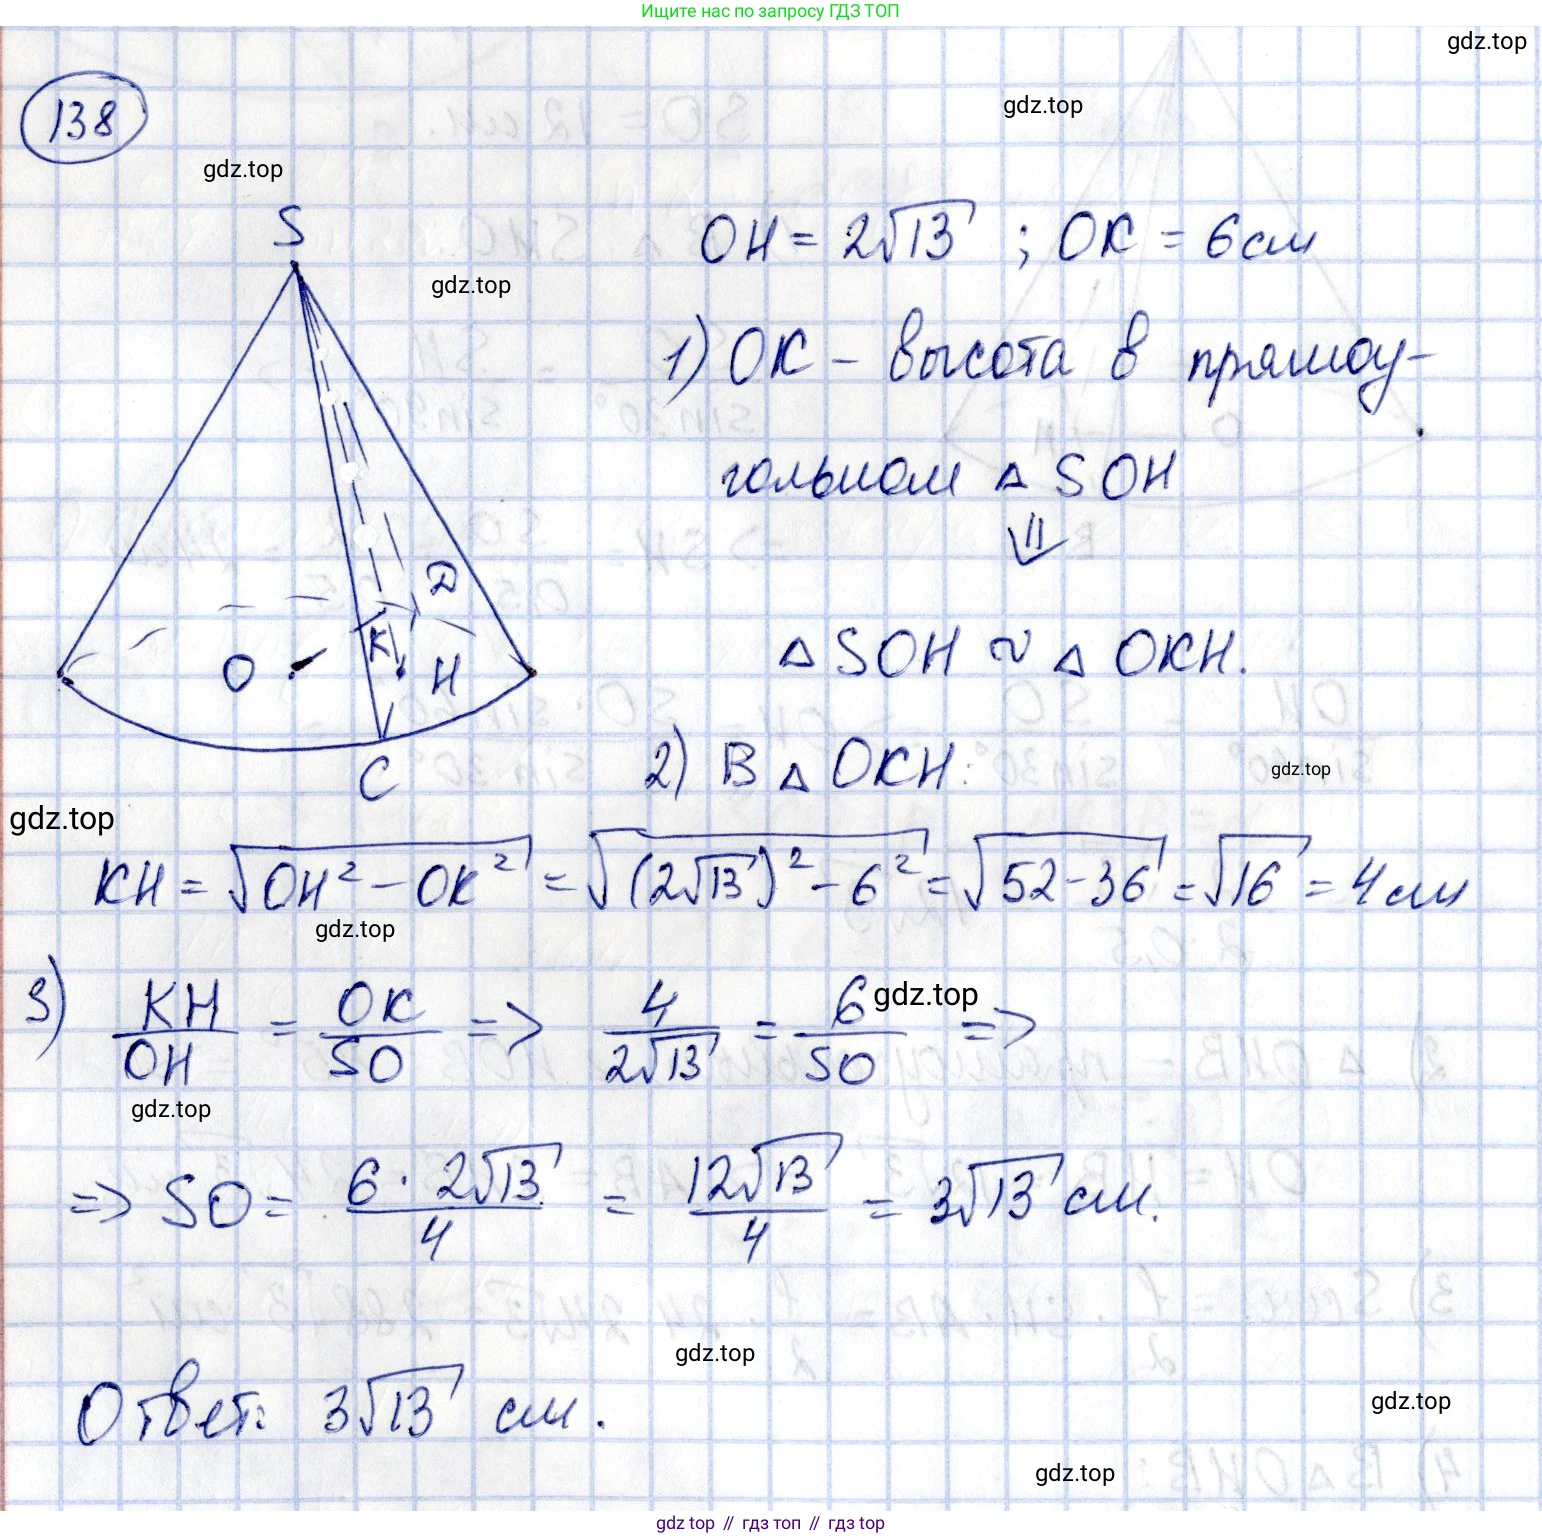 Ищите нас по запросу ГДЗ ТОП
gdz.top
138
gdz.top
gdz.top
S
gdz.top
OH = 2√13 ; OK = 6 см
1) OK – высота в прямоу-
гольном △ SOH
⇓
△ SOH ~ △ OKH.
D
O
K
H
C
2) В △ OKH:
gdz.top
gdz.top
KH = √(OH² – OK²) = √((2√13)² – 6²) = √(52 – 36) = √16 = 4 см
gdz.top
3) KH/OH = OK/SO => 4/(2√13) = 6/SO =>
gdz.top
gdz.top
=> SO = (6 · 2√13)/4 = 12√13/4 = 3√13 см.
gdz.top
Ответ: 3√13 см.
gdz.top
gdz.top
gdz top // гдз топ // гдз top